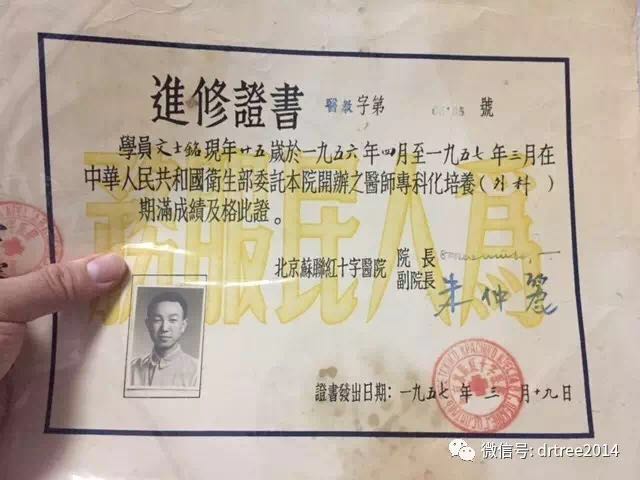 進修證書 醫教字第 號
學員文士銘現年廿五歲於一九五六年四月至一九五七年三月在
中華人民共和國衛生部委託本院開辦之醫師專科化培養(外科)
期滿成績及格此證。
為人民服務
北京蘇聯紅十字醫院 院長
副院長 朱仲麗
證書發出日期:一九五七年三月十九日
微信号: drtree2014